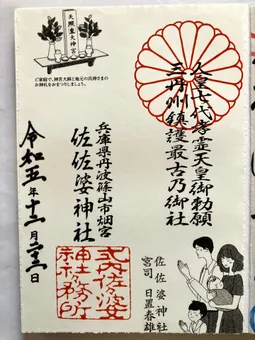 人皇七代孝霊天皇御勅願
三丹州鎮護最古乃御社
佐佐婆神社
宮司 日置春雄
天照皇大神宮
ご家庭で、神宮大麻と地元の氏神さまの
お神札をおまつりしましょう。
兵庫県丹波篠山市畑宮
佐佐婆神社
式内佐佐婆
神社社務所
令和五年十二月日